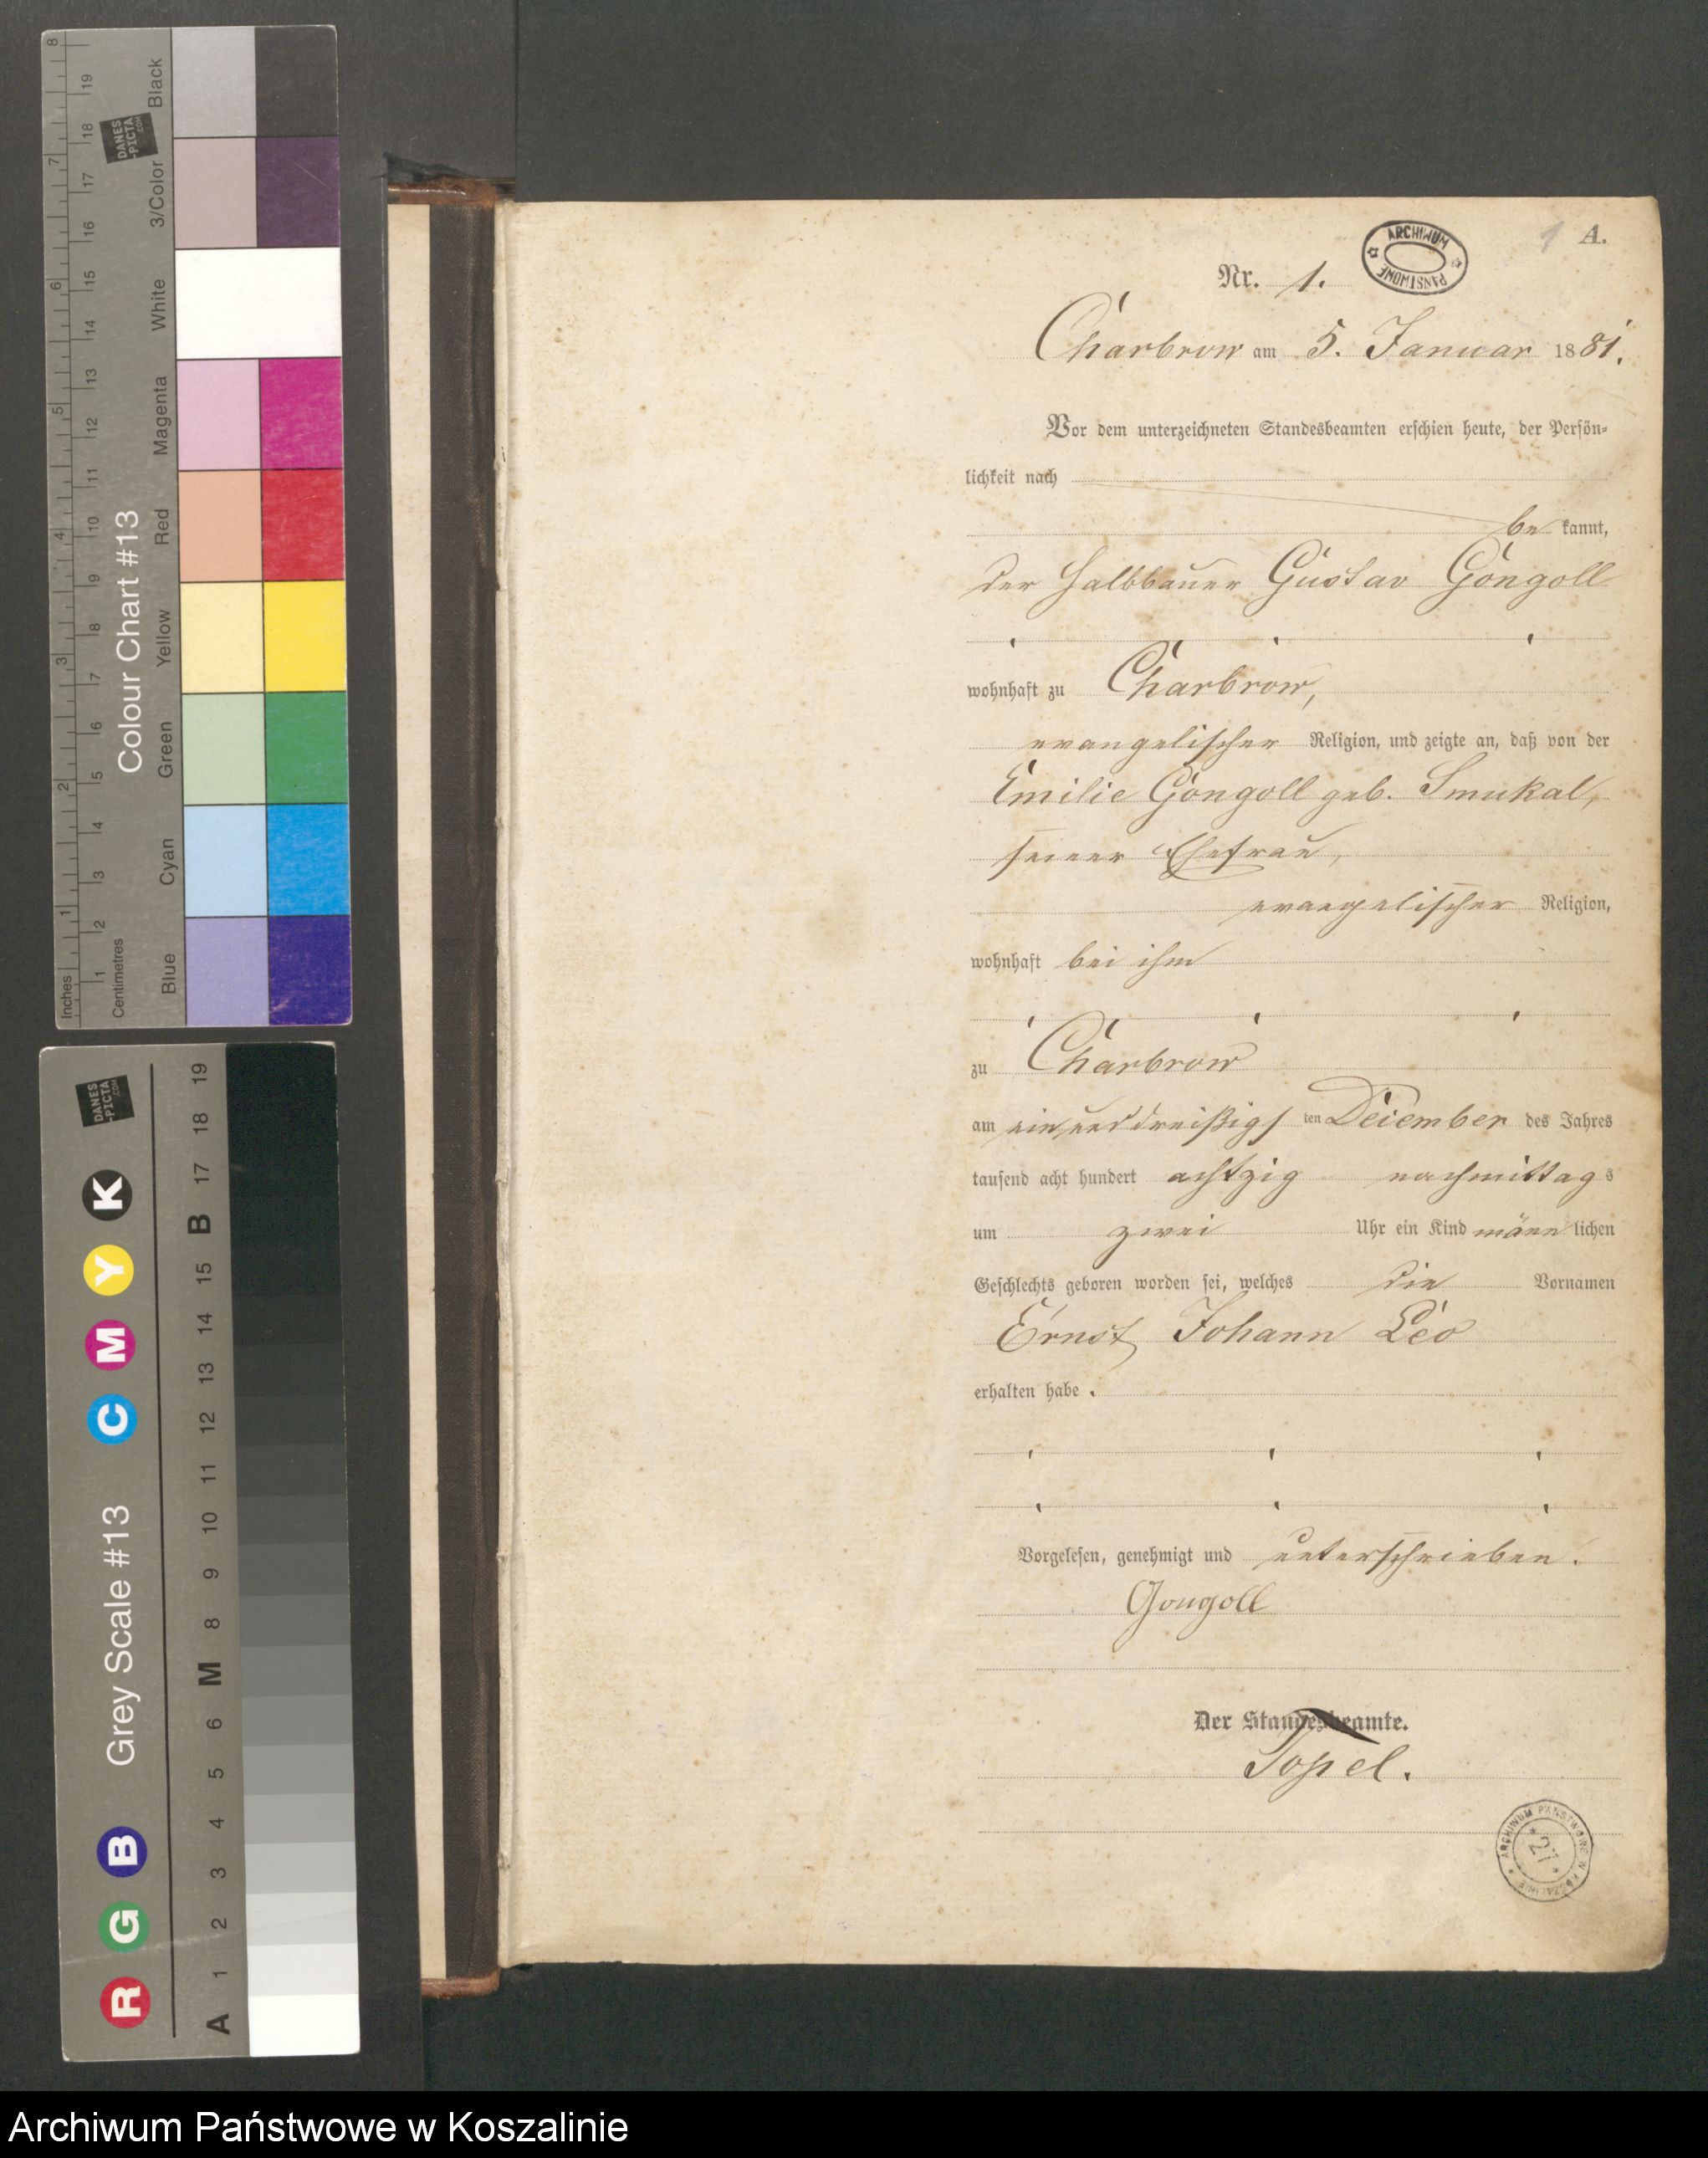 8
7
6
5
4
3
2
1
Inches
19
18
17
16
15
14
13
12
11
10
9
8
7
6
5
4
3
2
1
Centimetres
DANES
-PICTA
.COM
Colour Chart #13
Black
3/Color
White
Magenta
Red
Yellow
Green
Cyan
Blue
DANES
-PICTA
.COM
Grey Scale #13
R G B C M Y K
A 1 2 3 4 5 6 M 8 9 10 11 12 13 14 15 B 17 18 19
1 A.
ARCHIWUM PAŃSTWOWE
Nr. 1.
Charbrow am 5. Januar 1881.
Vor dem unterzeichneten Standesbeamten erschien heute, der Persön-
lichkeit nach
bekannt,
der Halbbauer Gustav Gongoll
wohnhaft zu Charbrow,
evangelischer Religion, und zeigte an, daß von der
Emilie Gongoll geb. Smukal,
seiner Ehefrau,
evangelischer Religion,
wohnhaft bei ihm
zu Charbrow
am einunddreißigsten December des Jahres
tausend acht hundert achtzig nachmittags
um zwei Uhr ein Kind männlichen
Geschlechts geboren worden sei, welches die Vornamen
Ernst Johann Leo
erhalten habe.
Vorgelesen, genehmigt und unterschrieben.
Gongoll
Der Standesbeamte.
Topel.
ARCHIWUM PAŃSTWOWE W KOSZALINIE
* 27 *
Archiwum Państwowe w Koszalinie